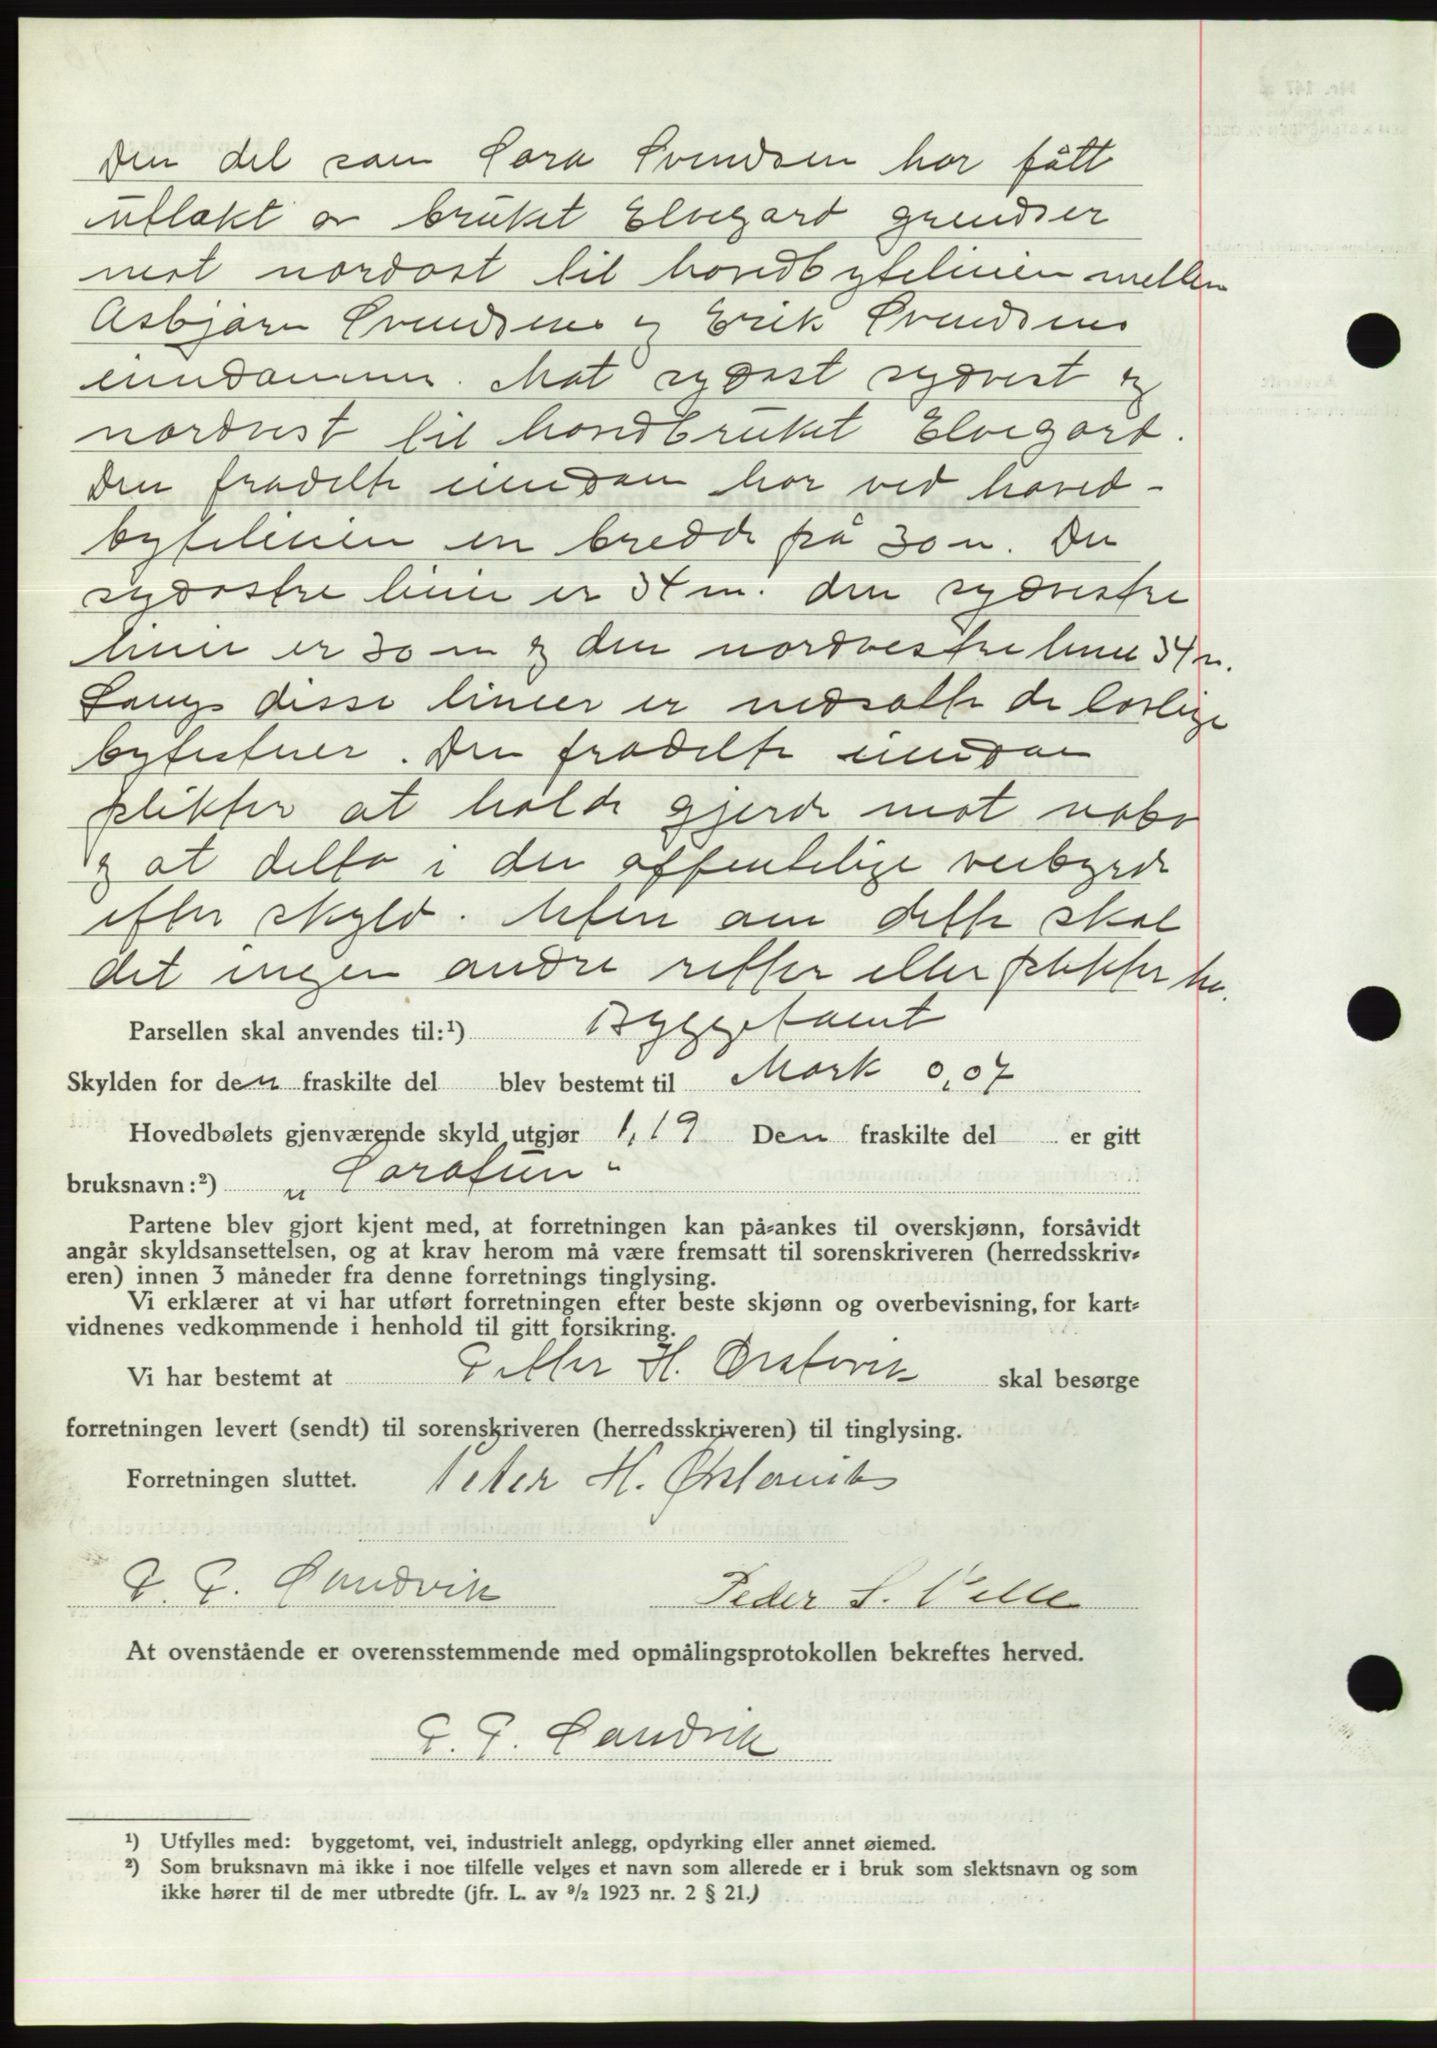 Den del som Sara Svendsen har fått
utlakt av bruket Elvegard grendser
mot nordost til hovedbytelinien mellem
Asbjørn Svendsens og Erik Svendsens
eiendommer. Mot sydost sydvest og
nordvest til hovedbruket Elvegard.
Den fradelte eiendom har ved hoved-
bytelinien en bredde på 30 m. Den
sydostre linie er 34 m. den sydvestre
linie er 30 m og den nordvestre linie 34 m.
Langs disse linier er nedsatte de lovlige
bytesteiner. Den fradelte eiendom
plikter at holde gjerde mot nabo
og at delta i den offentelige veibyrde
efter skyld. Uten om dette skal
det ingen andre retter eller plikter ha.
Parsellen skal anvendes til:¹) Byggetomt
Skylden for den fraskilte del blev bestemt til Mark 0,07
Hovedbølets gjenværende skyld utgjør 1,19 Den fraskilte del er gitt
bruksnavn:²) „Saratun“
Partene blev gjort kjent med, at forretningen kan på-ankes til overskjønn, forsåvidt
angår skyldsansettelsen, og at krav herom må være fremsatt til sorenskriveren (herredsskriv-
eren) innen 3 måneder fra denne forretnings tinglysing.
Vi erklærer at vi har utført forretningen efter beste skjønn og overbevisning, for kart-
vidnenes vedkommende i henhold til gitt forsikring.
Vi har bestemt at Petter H. Ørstavik skal besørge
forretningen levert (sendt) til sorenskriveren (herredsskriveren) til tinglysing.
Forretningen sluttet. Peter H. Ørstavik
P. P. Sandvik Peder S. Velle
At ovenstående er overensstemmende med opmålingsprotokollen bekreftes herved.
P. P. Sandvik
¹) Utfylles med: byggetomt, vei, industrielt anlegg, opdyrking eller annet øiemed.
²) Som bruksnavn må ikke i noe tilfelle velges et navn som allerede er i bruk som slektsnavn og som
ikke hører til de mer utbredte (jfr. L. av ⁹/₂ 1923 nr. 2 § 21.)